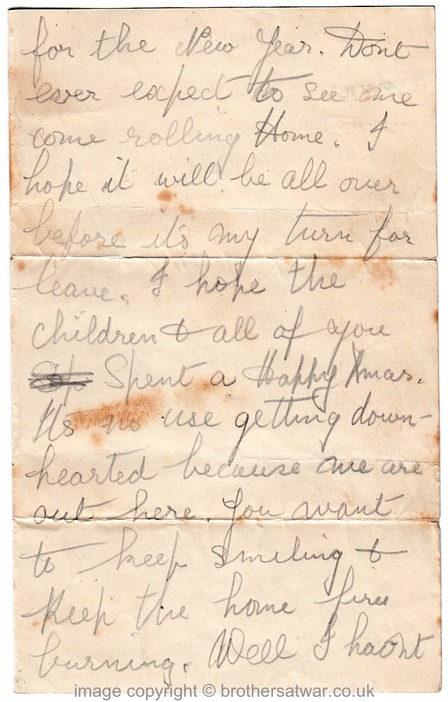 for the New Year. Dont
ever expect to see me
come rolling Home. I
hope it will be all over
before it's my turn for
leave. I hope the
children & all of you
Spent a Happy Xmas.
It's no use getting down-
hearted because we are
out here. You want
to keep smiling &
Keep the home fires
burning. Well I havnt
image copyright © brothersatwar.co.uk